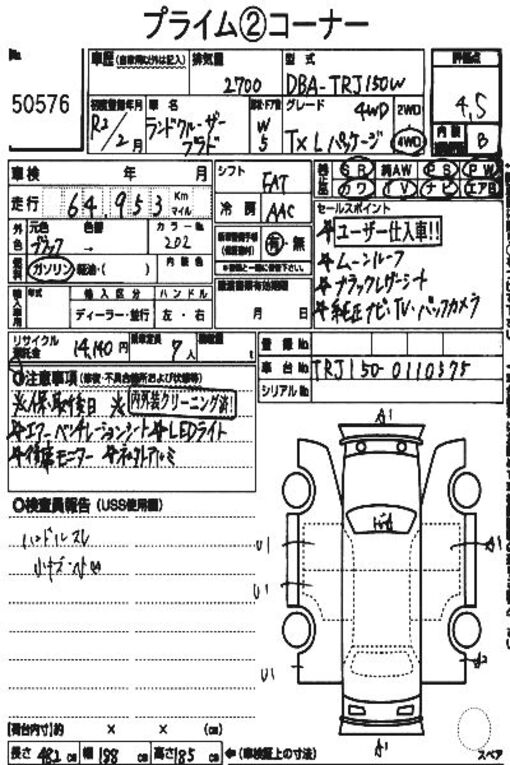 プライム②コーナー
No.
50576
車歴 (自家用以外は記入)
排気量
2700
型式
DBA-TRJ150W
評価点
4.5
初度登録年月
R2/2月
車名
ランドクルーザー
プラド
ドア数
W
5
グレード
4WD
TX L パッケージ
2WD
4WD
内装
B
車検 年 月
走行 64,953 Km マイル
シフト
FAT
冷房
AAC
SR 純AW PS PW
カワ TV ナビ エアB
外色
元色
ブラック
色替
→
カラーNo.
202
燃料
ガソリン・軽油・( )
内装色
有・無
セールスポイント
☆ユーザー仕入車!!
☆ムーンルーフ
☆ブラックレザーシート
☆純正ナビ・TV・バックカメラ
輸入車用
年式
輸入区分
ディーラー・並行
ハンドル
左・右
月 日
リサイクル預託金
14,140円
乗車定員
7人
積載量
t
登録No.
車台No. TRJ150-0110375
シリアルNo.
〇注意事項 (修復・不具合箇所および状態等)
内外装クリーニング済!
☆エアーベンチレーションシート ☆LEDライト
〇検査員報告 (USS使用欄)
ハンドルスレ
小キズ・ヘコ
A1
U1
A1
U1
U1
A2
A1
【荷台内寸】約 × × (cm)
長さ 482 cm 幅 188 cm 高さ 185 cm ←(車検証上の寸法)
スペア